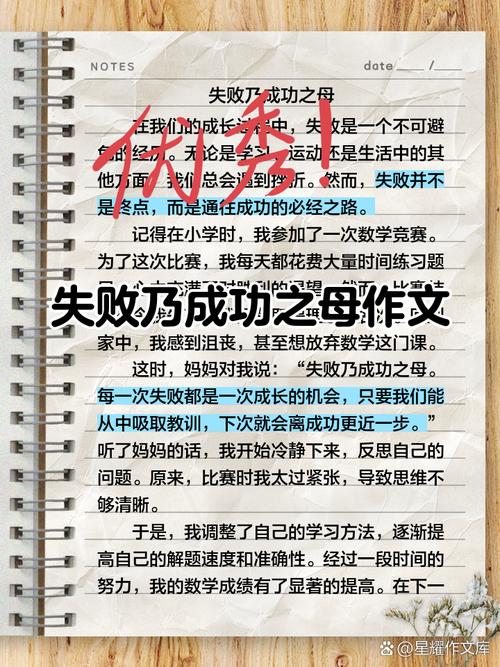 NOTES
date ___ / ___
失败乃成功之母
优秀！
在我们的成长过程中，失败是一个不可避
免的经历。无论是学习、运动还是生活中的其
他方面，我们总会遇到挫折。然而，失败并不
是终点，而是通往成功的必经之路。
记得在小学时，我参加了一次数学竞赛。
为了这次比赛，我每天都花费大量时间练习题
失败乃成功之母作文
家中，我感到沮丧，甚至想放弃数学这门课。
这时，妈妈对我说：“失败乃成功之母。
每一次失败都是一次成长的机会，只要我们能
从中吸取教训，下次就会离成功更近一步。”
听了妈妈的话，我开始冷静下来，反思自己的
问题。原来，比赛时我太过紧张，导致思维不
够清晰。
于是，我调整了自己的学习方法，逐渐提
高自己的解题速度和准确性。经过一段时间的
努力，我的数学成绩有了显著的提高。在下一
@星耀作文库